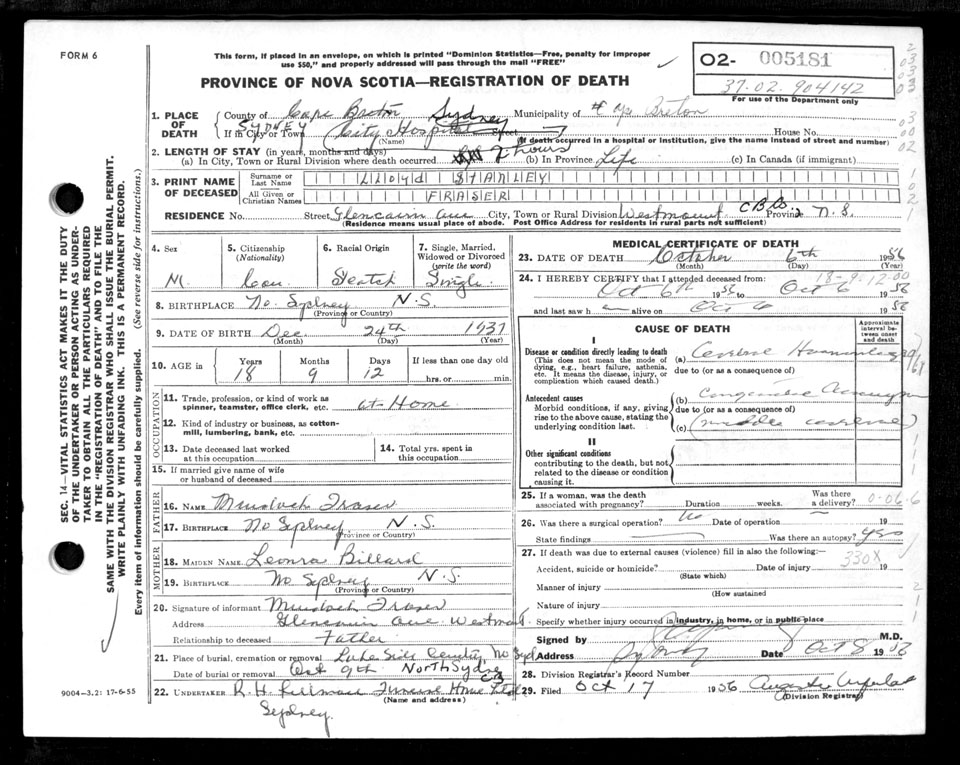 FORM 6
This form, if placed in an envelope, on which is printed "Dominion Statistics—Free, penalty for improper
use $50," and properly addressed will pass through the mail "FREE"
02- 005181
PROVINCE OF NOVA SCOTIA—REGISTRATION OF DEATH
37.02.904142
For use of the Department only
SEC. 14—VITAL STATISTICS ACT MAKES IT THE DUTY
OF THE UNDERTAKER OR PERSON ACTING AS UNDER-
TAKER TO OBTAIN ALL THE PARTICULARS REQUIRED
IN THE "REGISTRATION OF DEATH" AND TO FILE THE
SAME WITH THE DIVISION REGISTRAR WHO SHALL ISSUE THE BURIAL PERMIT.
WRITE PLAINLY WITH UNFADING INK. THIS IS A PERMANENT RECORD.
Every item of information should be carefully supplied. (See reverse side for instructions.)
1. PLACE OF DEATH
County of Cape Breton Sydney Municipality of Breton
If in City or Town SYDNEY City Hospital Street House No.
(Name) (If death occurred in a hospital or institution, give the name instead of street and number)
2. LENGTH OF STAY (in years, months and days)
(a) In City, Town or Rural Division where death occurred 2 hours (b) In Province Life (c) In Canada (if immigrant)
3. PRINT NAME OF DECEASED
Surname or Last Name LLOYD STANLEY
All Given or Christian Names FRASER
RESIDENCE No. Street Glencairn Ave City, Town or Rural Division Westmount C B Co. Province N. S.
(Residence means usual place of abode. Post Office Address for residents in rural parts not sufficient)
4. Sex M.
5. Citizenship (Nationality) Can
6. Racial Origin Scotch
7. Single, Married, Widowed or Divorced (write the word) Single
8. BIRTHPLACE No. Sydney N.S.
(Province or Country)
9. DATE OF BIRTH Dec 24th 1937
(Month) (Day) (Year)
10. AGE in Years 18 Months 9 Days 12 If less than one day old
hrs. or min.
OCCUPATION
11. Trade, profession, or kind of work as
spinner, teamster, office clerk, etc. at Home
12. Kind of industry or business, as cotton-
mill, lumbering, bank, etc.
13. Date deceased last worked
at this occupation
14. Total yrs. spent in
this occupation
15. If married give name of wife
or husband of deceased
FATHER
16. NAME Murdoch Fraser
17. BIRTHPLACE No Sydney N.S.
(Province or Country)
MOTHER
18. MAIDEN NAME Leonra Billard
19. BIRTHPLACE No Sydney N.S.
(Province or Country)
20. Signature of informant Murdoch Fraser
Address Glencairn Ave Westmount
Relationship to deceased Father
21. Place of burial, cremation or removal Lake Side Cemetery No Syd
Date of burial or removal Oct 9th North Sydney C.B
22. UNDERTAKER R. H. Funeral Home Ltd
(Name and address)
Sydney.
9004—3.2: 17-6-55
MEDICAL CERTIFICATE OF DEATH
23. DATE OF DEATH October 6th 1956
(Month) (Day) (Year)
18-9-12-00
24. I HEREBY CERTIFY that I attended deceased from:
Oct 6th 1956 to Oct 6 1956
and last saw h alive on Oct 6 1956
CAUSE OF DEATH
Approximate interval between onset and death
I
Disease or condition directly leading to death
(This does not mean the mode of
dying, e.g., heart failure, asthenia,
etc. It means the disease, injury, or
complication which caused death.)
(a)
due to (or as a consequence of)
Antecedent causes
Morbid conditions, if any, giving
rise to the above cause, stating the
underlying condition last.
(b) Congenital Aneurysm
due to (or as a consequence of)
(c) (middle cerebral)
II
Other significant conditions
contributing to the death, but not
related to the disease or condition
causing it.
25. If a woman, was the death
associated with pregnancy? Duration weeks. Was there
a delivery?
0-06.6
26. Was there a surgical operation? No Date of operation 19
State findings Was there an autopsy? yes
27. If death was due to external causes (violence) fill in also the following:—
330X
Accident, suicide or homicide? Date of injury 19
(State which)
Manner of injury
(How sustained)
Nature of injury
Specify whether injury occurred in industry, in home, or in public place
Signed by M.D.
Address Sydney Date Oct 8 1956
28. Division Registrar's Record Number
29. Filed Oct 17 1956
(Division Registrar)